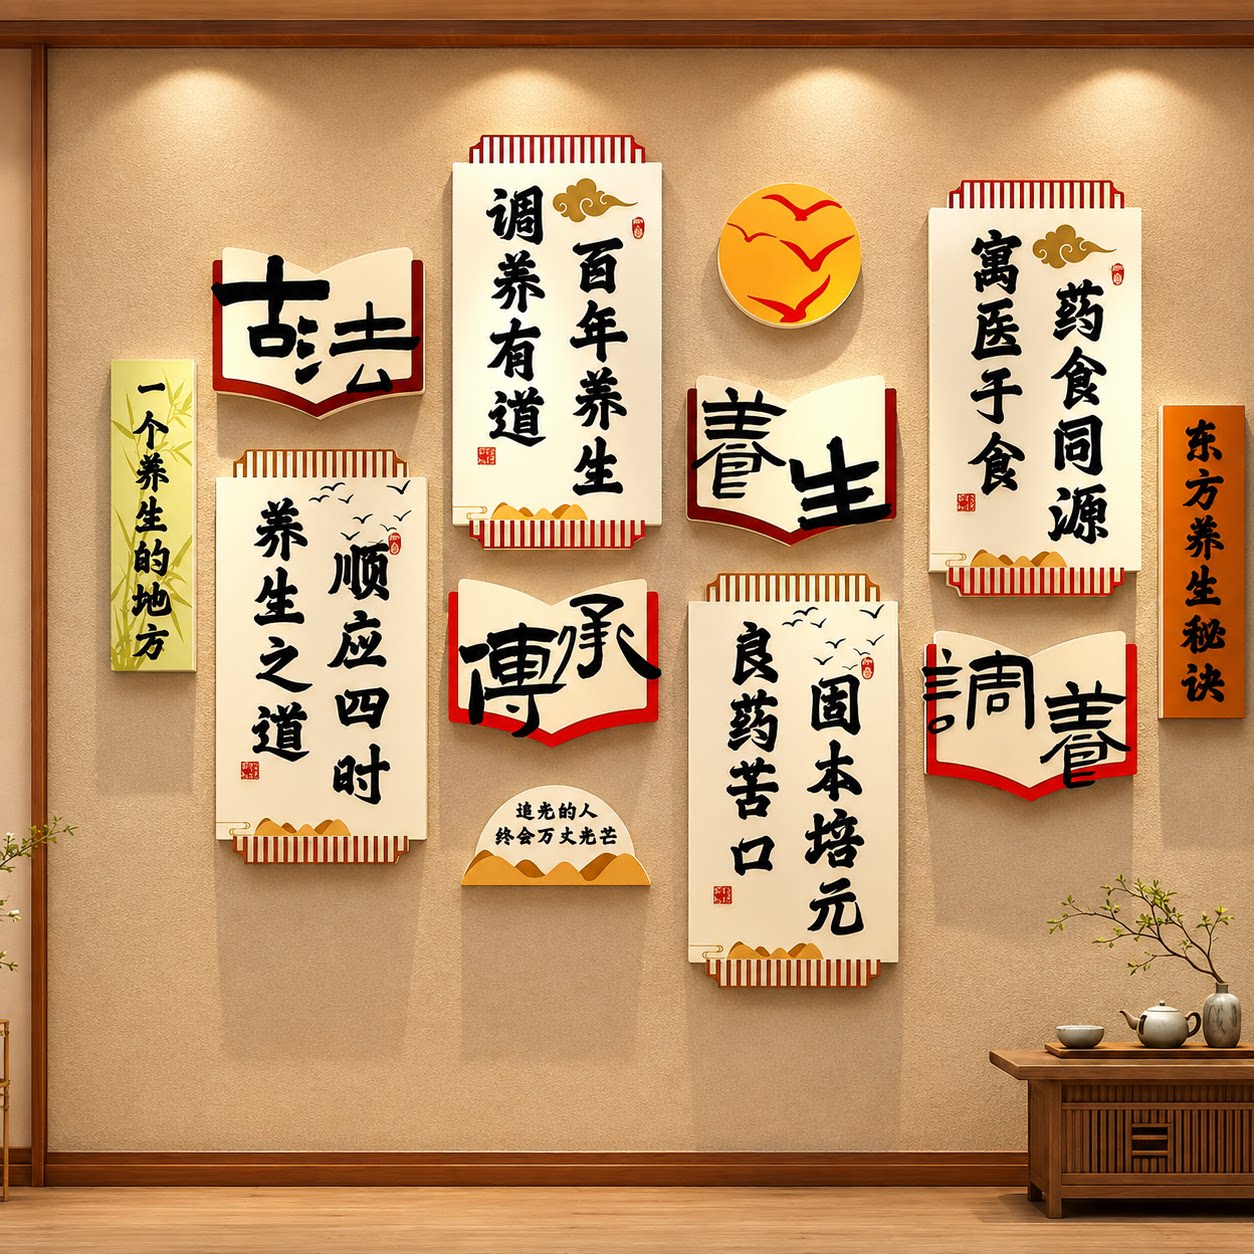 一个养生的地方
古法
顺应四时
养生之道
百年养生
调养有道
傳承
追光的人
终会万丈光芒
養生
固本培元
良药苦口
药食同源
寓医于食
調養
东方养生秘诀